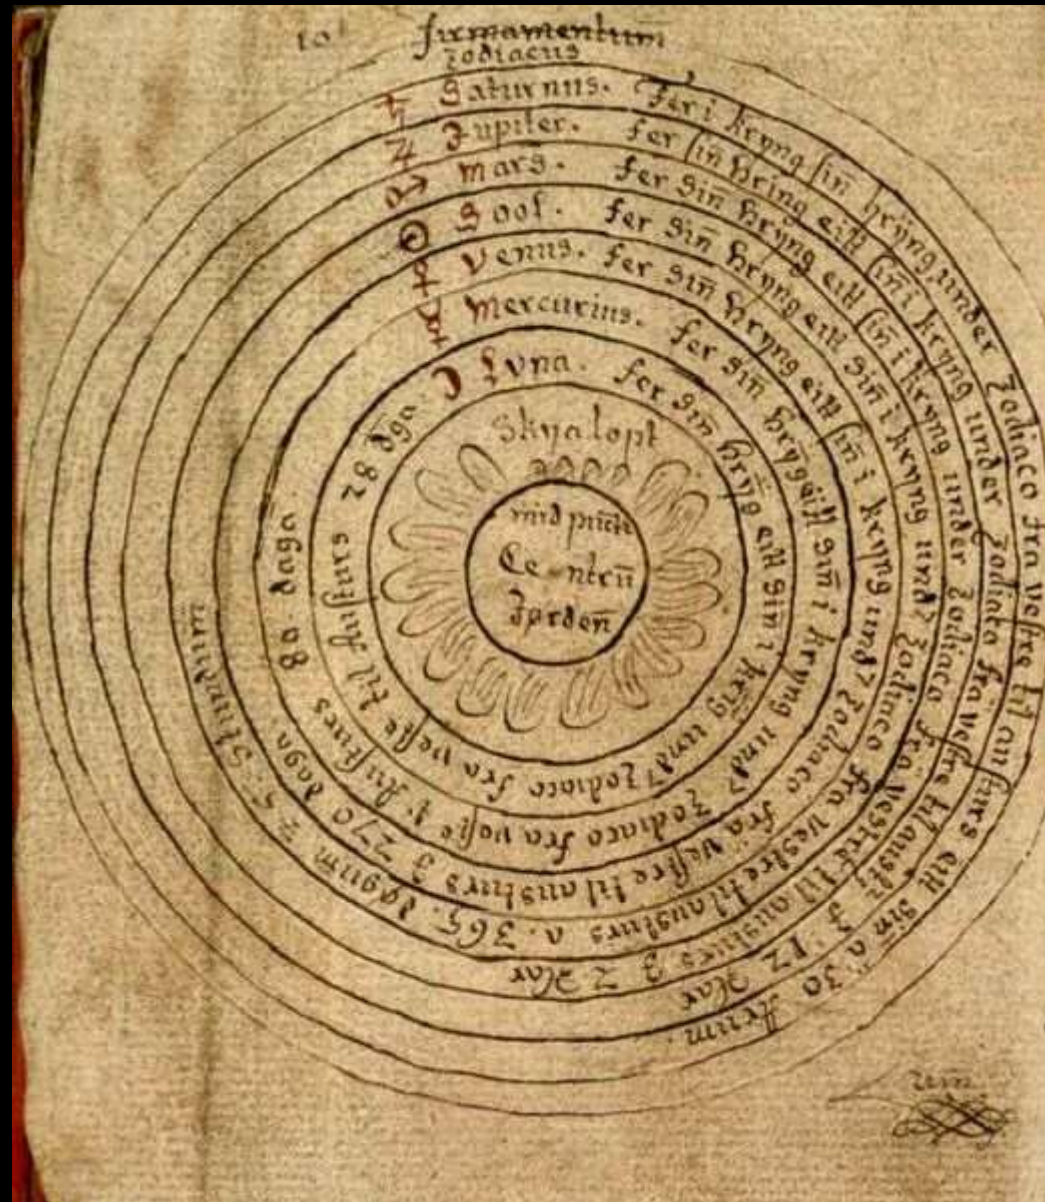 101
firmamentum
Zodiacus
♄ Saturnus. Fer i kryng sin̄ hrÿng under Zodiaco fra vestre til austurs eitt sin̄ a 30 Arum.
♃ Jupiter. fer sin̄ hring eitt sin̄ i kryng under Zodiaco fra vestre til austr̄ Z. 12 Aar
♂ mars. fer sin̄ hryng eitt sin̄ i kryng under Zodiaco fra vestre til austurs Z 2 Aar
☉ Sool. fer sin̄ hryng eitt sin̄ i kryng und7 Zodiaco fra vestre til austurs a. 365. dagum Z 5. Stundum
♀ Venus. fer sin̄ hryng eitt sin̄ i kryng und7 Zodiaco fra vestre til austurs Z 270 daga
☿ Mercurius. fer sin̄ hrÿg eitt sin̄ i kryng und7 Zodiaco fra veste t' Austures 80 daga.
☽ Lvna. fer sin̄ hrÿg eitt sin i krÿg und7 Zodiaco fra veste til Austurs 28 dga.
Skyalopt
mid punct
Centrū
Jorden̄
um